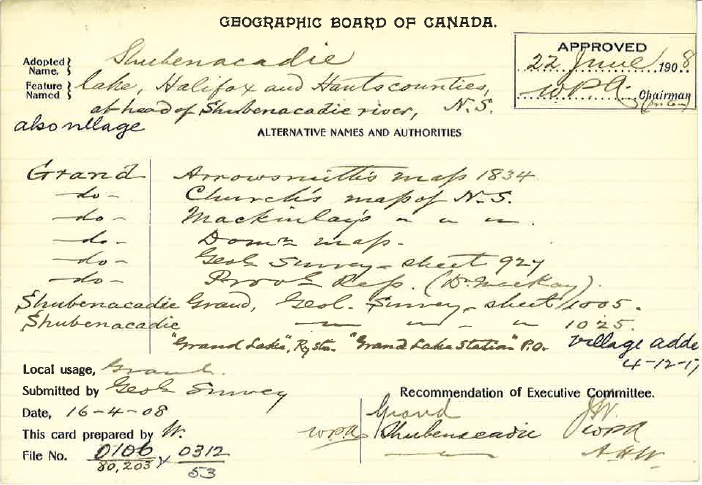 GEOGRAPHIC BOARD OF CANADA.
Adopted Name. } Shubenacadie
APPROVED
22 June 1908
W.P.A. Chairman
Feature Named } lake, Halifax and Hants counties,
at head of Shubenacadie river, N.S.
also village
ALTERNATIVE NAMES AND AUTHORITIES
Grand Arrowsmith's map 1834
-do- Church's map of N.S.
-do- Mackinlay's " " "
-do- Domn map.
-do- Geol Survey - sheet 927
-do- Prov'l Rep. (Dr. MacKay).
Shubenacadie Grand, Geol. Survey - sheet 1005.
Shubenacadie " " " 1025.
"Grand Lake", Ry. Stn. "Grand Lake Station" P.O. Village adde
4-12-17
Local usage, Grand.
Submitted by Geol Survey
Date, 16-4-08
This card prepared by W.
File No. 0106 / 80,203 x 0312 / 53
Recommendation of Executive Committee.
Grand J.W.
W.P.A. Shubenacadie W.P.A
A.H.W.